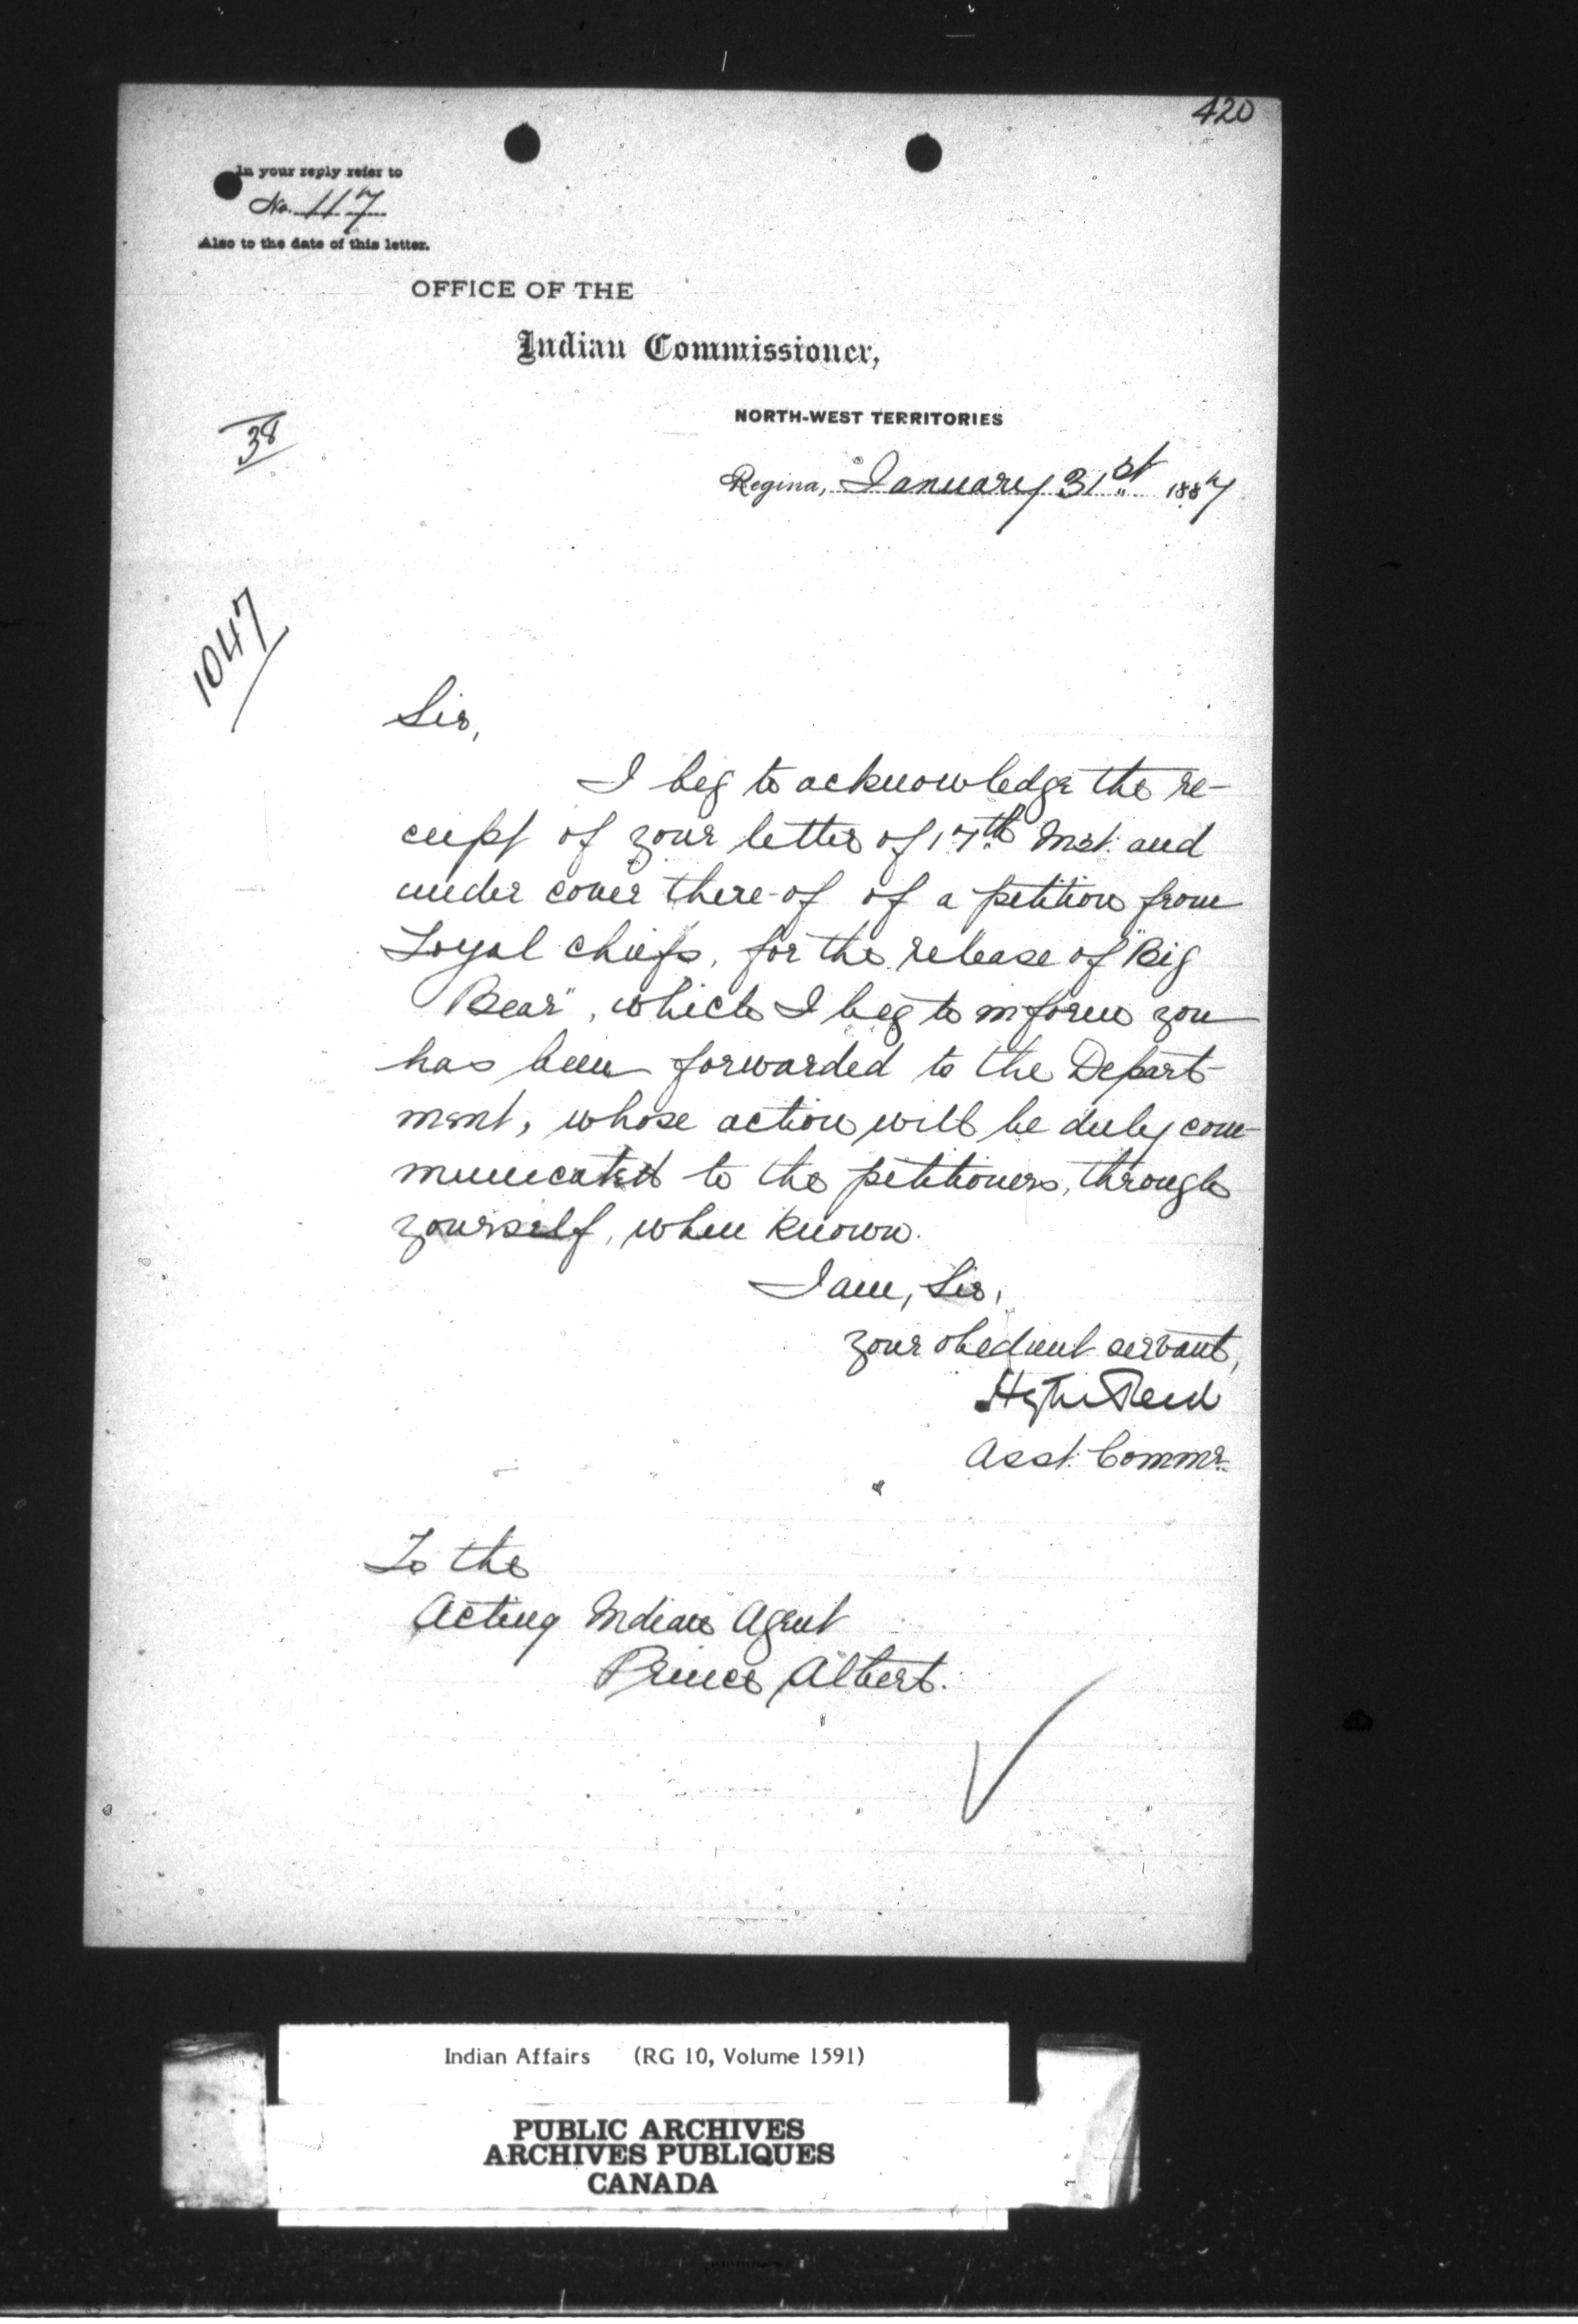 420
In your reply refer to
No. 117
Also to the date of this letter.
OFFICE OF THE
Indian Commissioner,
NORTH-WEST TERRITORIES
38
Regina, January 31st 1887
1047
Sir,
I beg to acknowledge the re-
ceipt of your letter of 17th Inst. and
under cover there-of of a petition from
Loyal chiefs, for the release of "Big
Bear", which I beg to inform you
has been forwarded to the Depart-
ment, whose action will be duly com-
municated to the petitioners, through
yourself, when known.
I am, Sir,
your obedient servant,
Hayter Reed
Asst. Commr.
To the
Acting Indian Agent
Prince Albert.
Indian Affairs (RG 10, Volume 1591)
PUBLIC ARCHIVES
ARCHIVES PUBLIQUES
CANADA